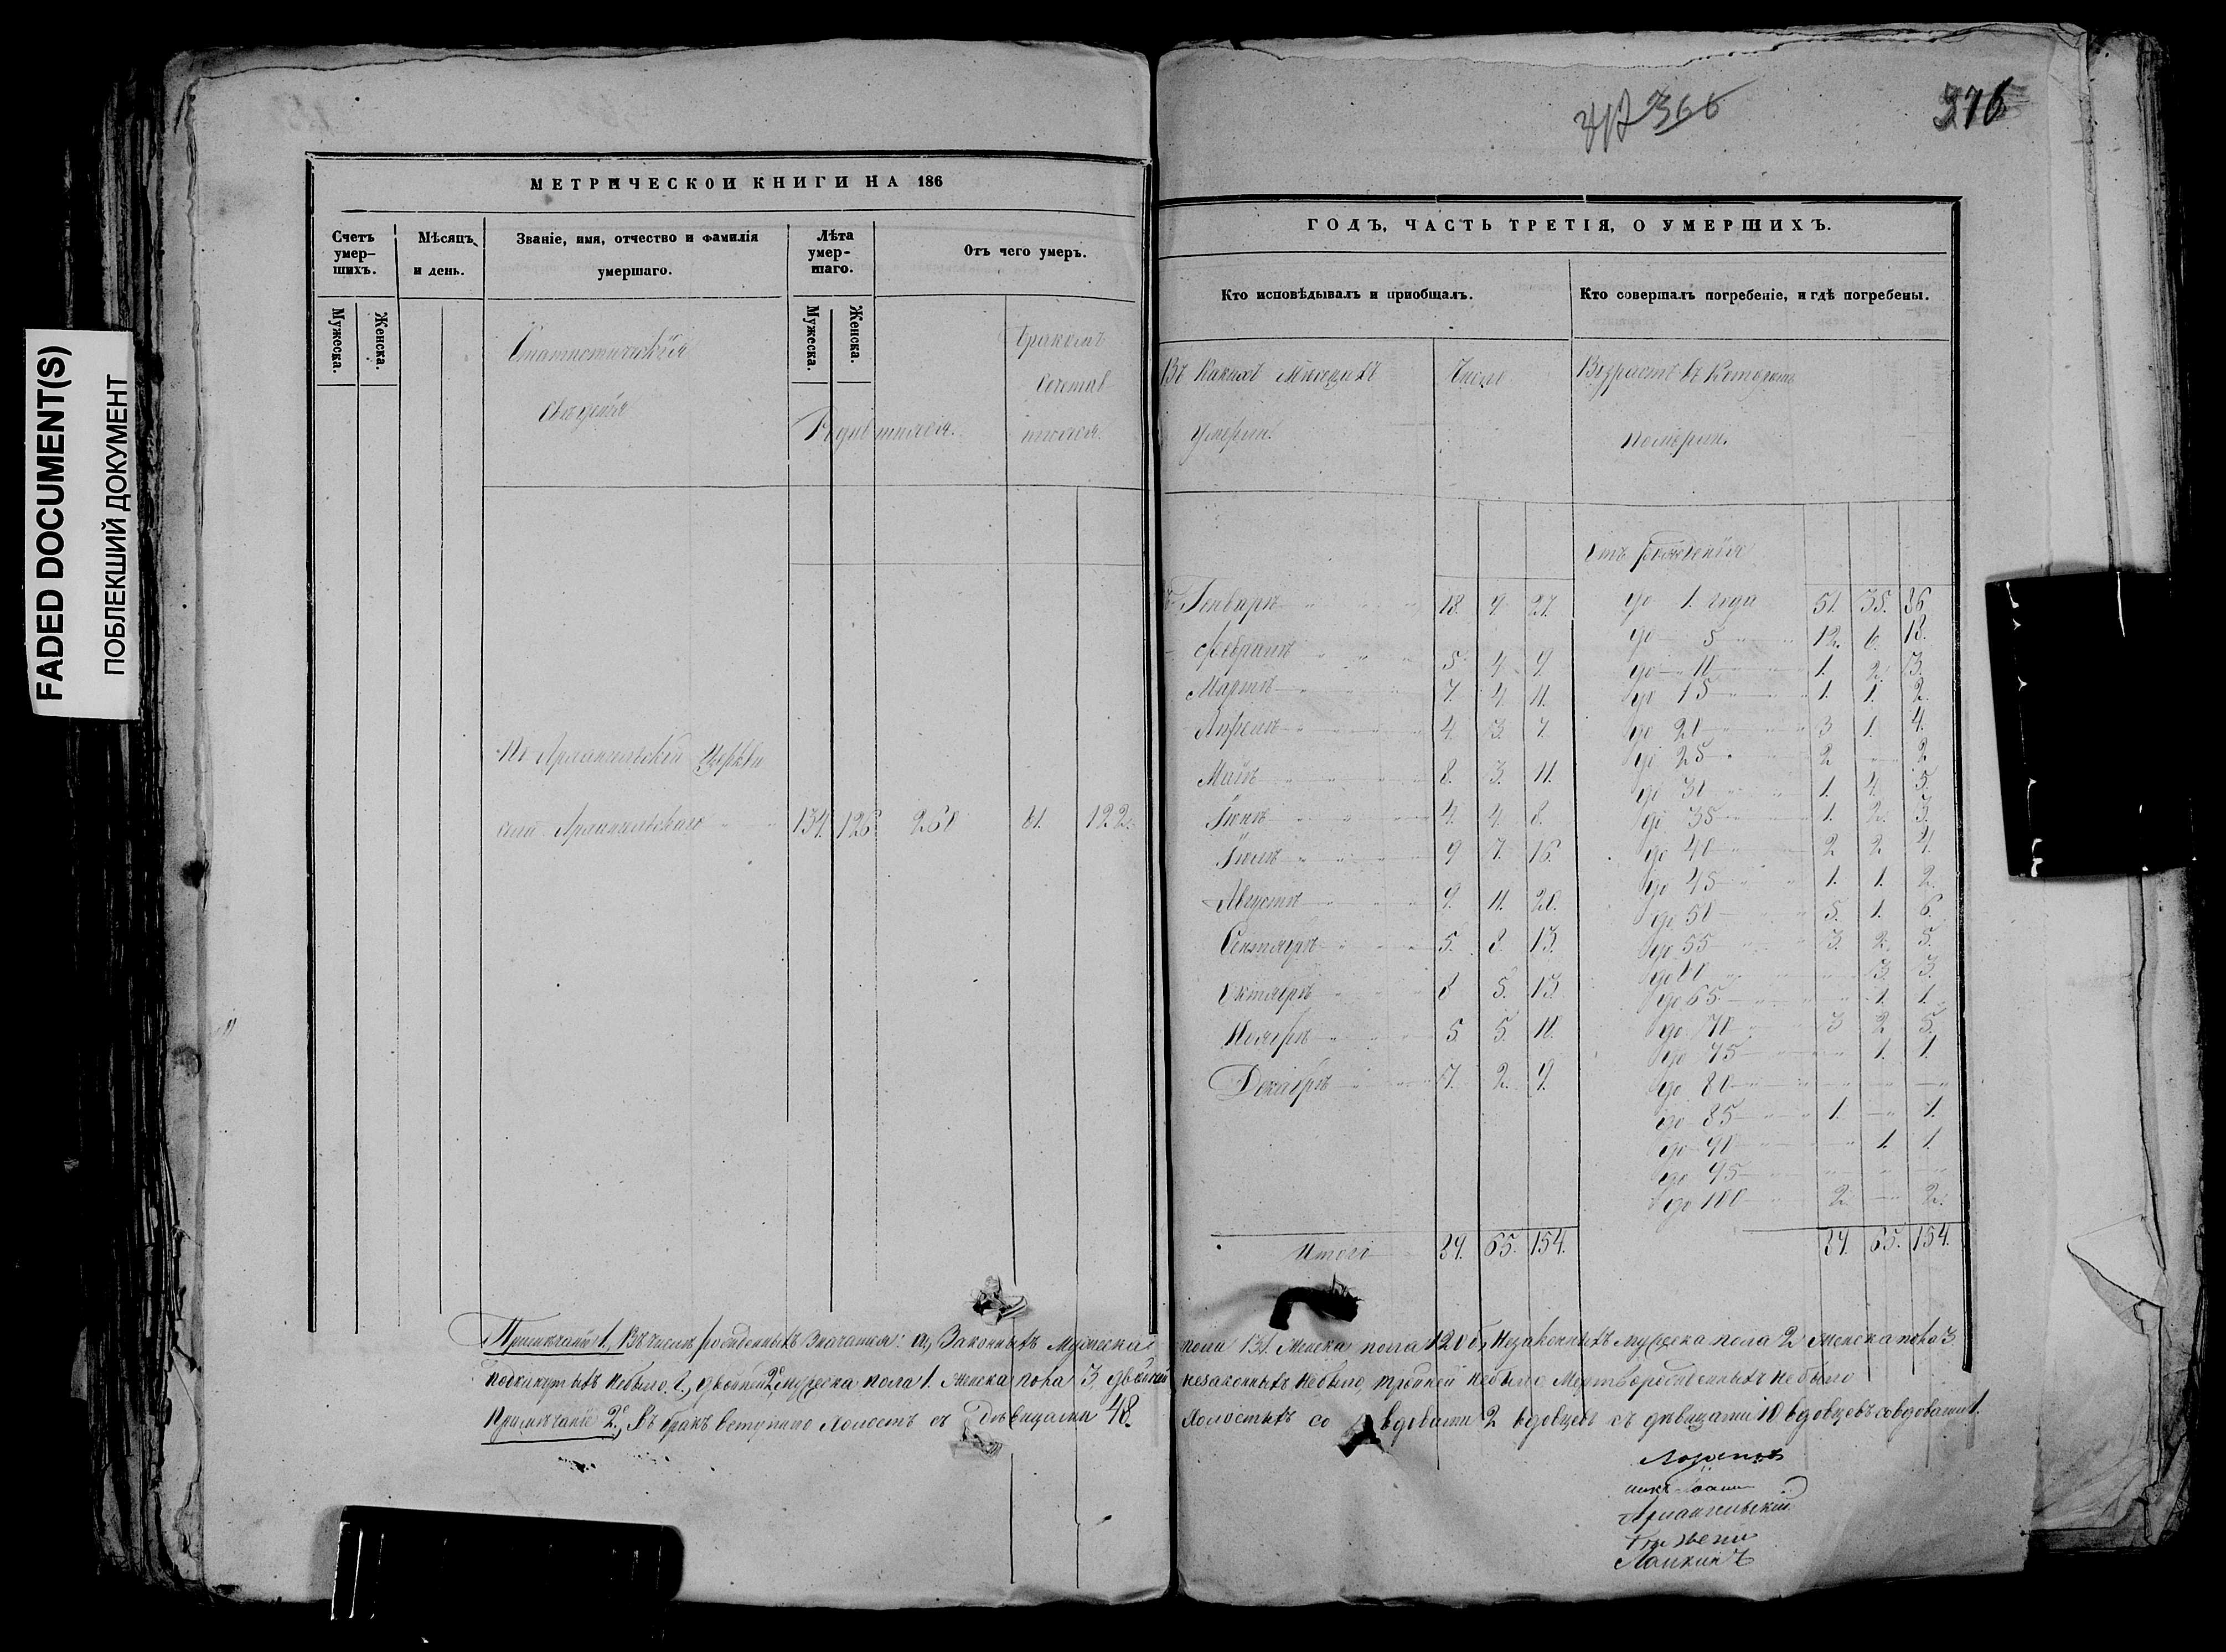 FADED DOCUMENT(S)
ПОБЛЕКШИЙ ДОКУМЕНТ
366
376
МЕТРИЧЕСКОЙ КНИГИ НА 186
Счетъ умер-шихъ.
Мѣсяцъ и день.
Званіе, имя, отчество и фамилія умершаго.
Лѣта умер-шаго.
Отъ чего умеръ.
Мужеска.
Женска.
Мужеска.
Женска.
Статистическія
Свѣденія
Родившихся.
Бракомъ
Сочетав
шихся.
По Архангельской Церкви
села Архангельскаго 134. 126. 260 61. 122.
ГОДЪ, ЧАСТЬ ТРЕТІЯ, О УМЕРШИХЪ.
Кто исповѣдывалъ и пріобщалъ.
Кто совершалъ погребеніе, и гдѣ погребены.
Въ Какихъ Мѣсяцахъ
Умерли.
Число
Возрастъ въ Которомъ
померли.
Генварѣ 18. 9. 27.
Февралѣ 5 4 9.
Мартѣ 7. 4. 11.
Апрелѣ 4. 3. 7.
Маѣ 8. 3. 11.
Іюнѣ 4. 4. 8.
Іюлѣ 9 7. 16.
Августѣ 9. 11. 20.
Сентябрѣ 5. 8. 13.
Октябрѣ 8 5. 13.
Ноябрѣ 5. 5. 10.
Декабрѣ 7. 2. 9.
Итого 89. 65. 154.
Отъ рожденія
до 1. года 51. 35. 86
до 5 12. 6. 18.
до 10 1. 2. 3.
до 15 1. 1. 2.
до 20 3 1. 4.
до 25 2 2
до 30 1. 4. 5.
до 35 1. 2. 3.
до 40 2 2 4.
до 45 1. 1. 2.
до 50 5. 1. 6.
до 55 3. 2. 5.
до 60 3. 3.
до 65 1. 1.
до 70 3 2 5.
до 75 1. 1.
до 80
до 85 1. 1.
до 90 1. 1.
до 95
до 100 2. 2.
89. 65. 154.
Примѣчаніе 1., Въ числѣ рожденныхъ Значатся: а, Законныхъ Мужеска пола 132. Женска пола 120 б, Незаконныхъ мужеска пола 2 женска пола 3.
подкинутыхъ небыло. двойней мужеска пола 1. женска пола 3, двойней незаконныхъ небыло, тройней небыло Мертворожденныхъ небыло
Примѣчаніе 2е, Въ бракъ вступило Холостъ съ Дѣвицами 48. Холостыхъ со вдовами 2 вдовцевъ съ дѣвицами 10 вдовцевъ совдовами 1.
Архангельскій